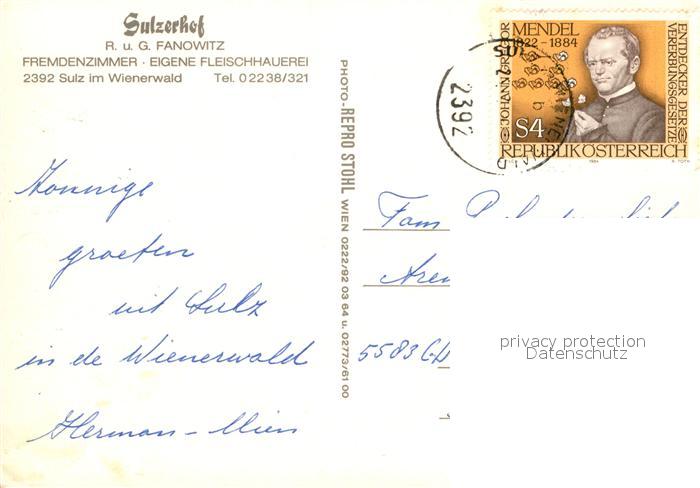 Sulzerhof
R. u. G. FANOWITZ
FREMDENZIMMER · EIGENE FLEISCHHAUEREI
2392 Sulz im Wienerwald Tel. 0 22 38/321
Zonnige
groeten
uit Sulz
in de Wienerwald
Herman - Mien
PHOTO-REPRO STOHL WIEN 0222/92 03 64 u. 02773/61 00
JOHANN GREGOR
MENDEL
1822-1884
ENTDECKER DER
VERERBUNGSGESETZE
S4
REPUBLIK ÖSTERREICH
1984
2392
Fam
5583
privacy protection
Datenschutz